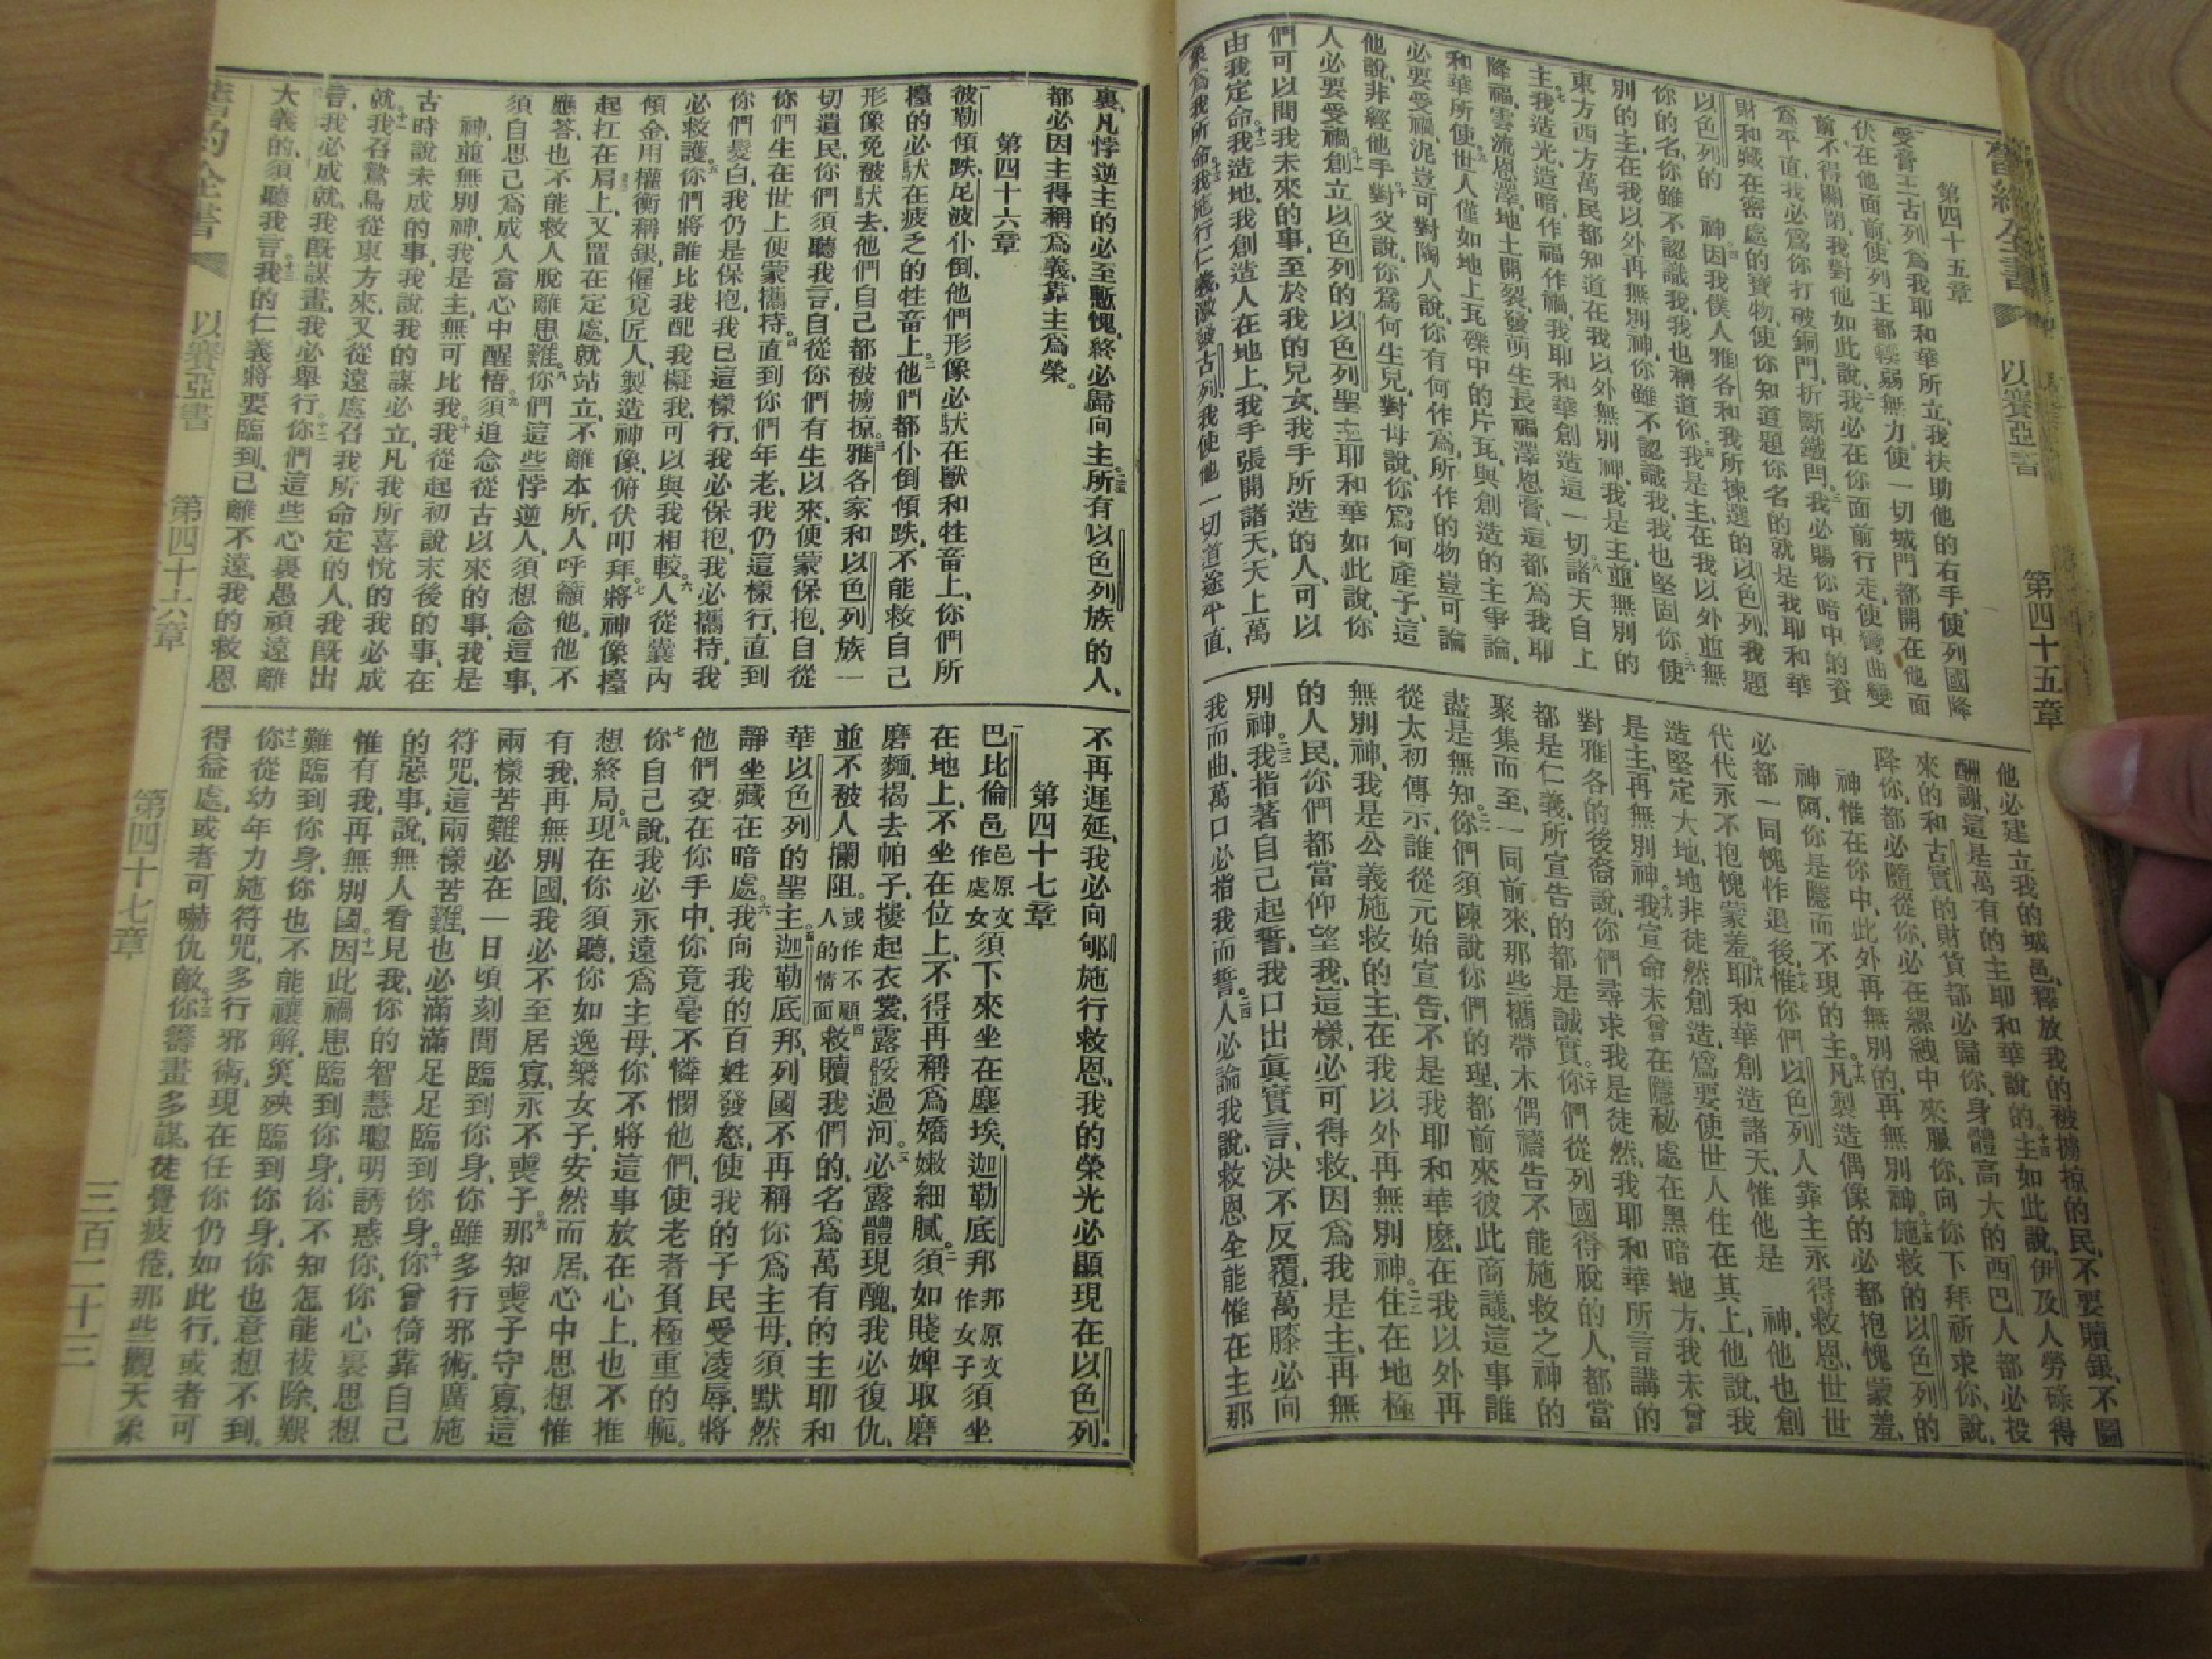 舊約全書 以賽亞書 第四十五章
第四十五章
受膏王古列爲我耶和華所立、我扶助他的右手、使列國降
伏在他面前、使列王都輭弱無力、使一切城門都開在他面
前、不得關閉、我對他如此說、二我必在你面前行走、使彎曲變
爲平直、我必爲你打破銅門、折斷鐵閂、三我必賜你暗中的資
財和藏在密處的寶物、使你知道題你名的就是我耶和華
以色列的 神、四因我僕人雅各和我所揀選的以色列、我題
你的名、你雖不認識我、我也稱道你、五我是主、在我以外並無
別的主、在我以外再無別神、你雖不認識我、我也堅固你、六使
東方西方萬民都知道在我以外無別神、我是主、並無別的
主、七我造光、造暗、作福作禍、我耶和華創造這一切、八諸天自上
降福、雲流恩澤、地土開裂、發萌生長、福澤恩膏、這都爲我耶
和華所使、九世人僅如地上瓦礫中的片瓦、與創造的主爭論、
必要受禍、泥豈可對陶人說、你有何作爲、所作的物豈可論
他說、非經他手、十對父說、你爲何生兒、對母說、你爲何產子、這
人必要受禍、十一創立以色列的以色列聖主耶和華如此說、你
們可以問我未來的事、至於我的兒女、我手所造的人、可以
由我定命、十二我造地、我創造人在地上、我手張開諸天、天上萬
象爲我所命、十三我施行仁義、激發古列、我使他一切道途平直、
他必建立我的城邑、釋放我的被擄掠的民、不要贖銀、不圖
酬謝、這是萬有的主耶和華說的、十四主如此說、伊及人勞碌得
來的和古實的財貨都必歸你、身體高大的西巴人都必投
降你、都必隨從你、必在縲絏中來服你、向你下拜祈求你、說、
神惟在你中、此外再無別的、再無別神、十五施救的以色列的
神阿、你是隱而不現的主、十六凡製造偶像的必都抱愧蒙羞、
必都一同愧怍退後、十七惟你們以色列人靠主永得救恩、世世
代代永不抱愧蒙羞、十八耶和華創造諸天、惟他是 神、他也創
造堅定大地、地非徒然創造、爲要使世人住在其上、他說、我
是主、再無別神、十九我宣命未曾在隱秘處在黑暗地方、我未曾
對雅各的後裔說、你們尋求我是徒然、我耶和華所言講的
都是仁義、所宣告的都是誠實、二十你們從列國得脫的人、都當
聚集而至、一同前來、那些攜帶木偶禱告不能施救之神的
盡是無知、二一你們須陳說你們的理、都前來彼此商議、這事誰
從太初傳示、誰從元始宣告、不是我耶和華麼、在我以外再
無別神、我是公義施救的主、在我以外再無別神、二二住在地極
的人民、你們都當仰望我、這樣、必可得救、因爲我是主、再無
別神、二三我指著自己起誓、我口出眞實言、決不反覆、萬膝必向
我而曲、萬口必指我而誓、二四人必論我說、救恩全能惟在主那
裏、凡悖逆主的必至慚愧、終必歸向主、二五所有以色列族的人、
都必因主得稱爲義、靠主爲榮。
第四十六章
彼勒傾跌、尼波仆倒、他們形像必馱在獸和牲畜上、你們所
擡的必馱在疲乏的牲畜上、二他們都仆倒傾跌、不能救自己
形像免被馱去、他們自己都被擄掠、三雅各家和以色列族一
切遺民、你們須聽我言、自從你們有生以來、便蒙保抱、自從
你們生在世上便蒙攜持、四直到你們年老、我仍這樣行、直到
你們髮白、我仍是保抱、我已這樣行、我必保抱、我必攜持、我
必救護、五你們將誰比我配我擬我、可以與我相較、六人從囊內
傾金、用權衡稱銀、僱覓匠人、製造神像、俯伏叩拜、七將神像擡
起扛在肩上、又置在定處、就站立、不離本所、人呼籲他、他不
應答、也不能救人脫離患難、八你們這些悖逆人、須想念這事、
須自思己爲成人、當心中醒悟、九須追念從古以來的事、我是
神、並無別神、我是主、無可比我、十我從起初說末後的事、在
古時說未成的事、我說我的謀必立、凡我所喜悅的我必成
就、十一我召鷙鳥從東方來、又從遠處召我所命定的人、我旣出
言、我必成就、我旣謀畫、我必舉行、十二你們這些心裏愚頑遠離
大義的、須聽我言、十三我的仁義將要臨到、已離不遠、我的救恩
不再遲延、我必向郇施行救恩、我的榮光必顯現在以色列。
第四十七章
巴比倫邑邑原文作處女須下來坐在塵埃、迦勒底邦邦原文作女子須坐
在地上、不坐在位上、不得再稱爲嬌嫩細膩、二須如賤婢取磨
磨麵、揭去帕子、摟起衣裳、露骽過河、三必露體現醜、我必復仇、
並不被人攔阻。或作不顧人的情面四救贖我們的、名爲萬有的主耶和
華以色列的聖主、五迦勒底邦、列國不再稱你爲主母、須默然
靜坐藏在暗處、六我向我的百姓發怒、使我的子民受凌辱、將
他們交在你手中、你竟毫不憐憫他們、使老者負極重的軛。
七你自己說、我必永遠爲主母、你不將這事放在心上、也不推
想終局、八現在你須聽、你如逸樂女子、安然而居、心中思想惟
有我、再無別國、我必不至居寡、永不喪子、九那知喪子守寡、這
兩樣苦難必在一日頃刻間臨到你身、你雖多行邪術、廣施
符咒、這兩樣苦難、也必滿滿足足臨到你身、十你曾倚靠自己
的惡事、說、無人看見我、你的智慧聰明誘惑你、你心裏思想
惟有我、再無別國、十一因此禍患臨到你身、你不知怎能祓除、艱
難臨到你身、你也不能禳解、災殃臨到你身、你也意想不到。
十二你從幼年力施符咒、多行邪術、現在任你仍如此行、或者可
得益處、或者可嚇仇敵、十三你籌畫多謀、徒覺疲倦、那些觀天象
舊約全書 以賽亞書 第四十六章 第四十七章 三百二十三